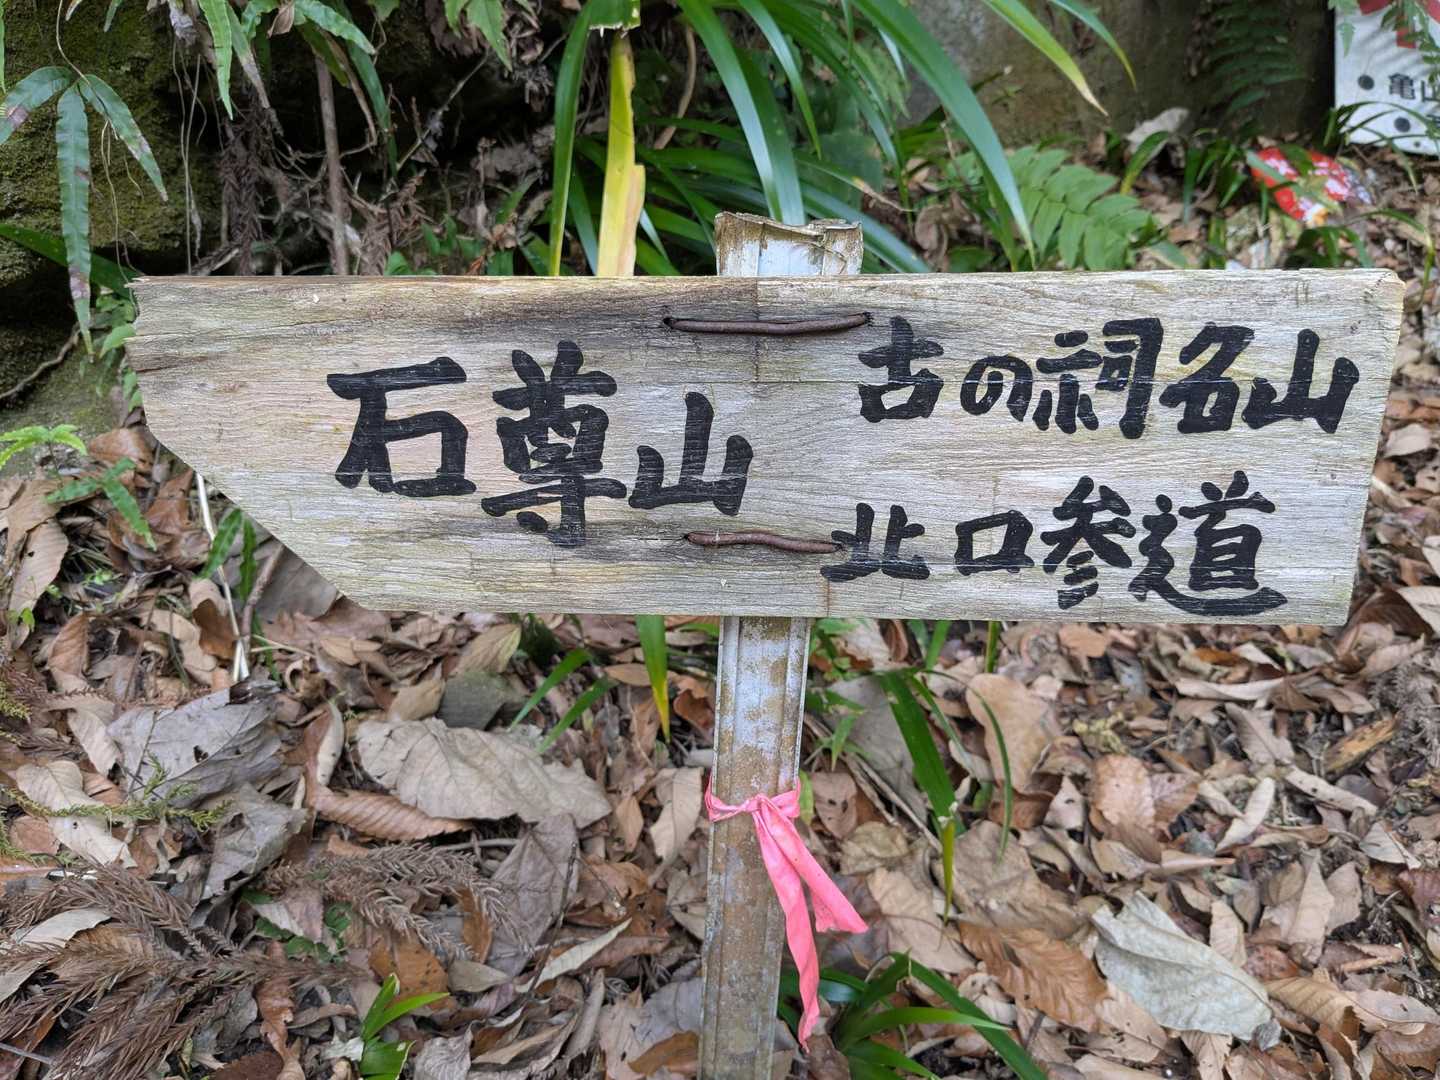 石尊山
古の祠名山
北口参道
亀山